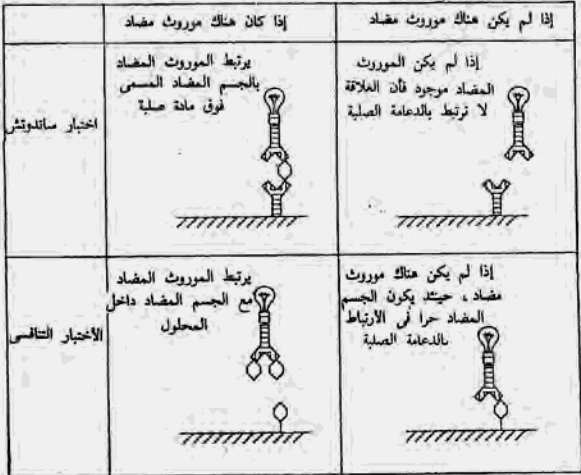 إذا كان هناك موروث مضاد
إذا لم يكن هناك موروث مضاد
اختبار ساندوتش
يرتبط الموروث المضاد
بالجسم المضاد المسمى
فوق مادة صلبة
إذا لم يكن الموروث
المضاد موجود فأن العلاقة
لا ترتبط بالدعامة الصلبة
الأختبار التنافسى
يرتبط الموروث المضاد
مع الجسم المضاد داخل
المحلول
إذا لم يكن هناك موروث
مضاد ، حيئذ يكون الجسم
المضاد حرا فى الأرتباط
بالدعامة الصلبة